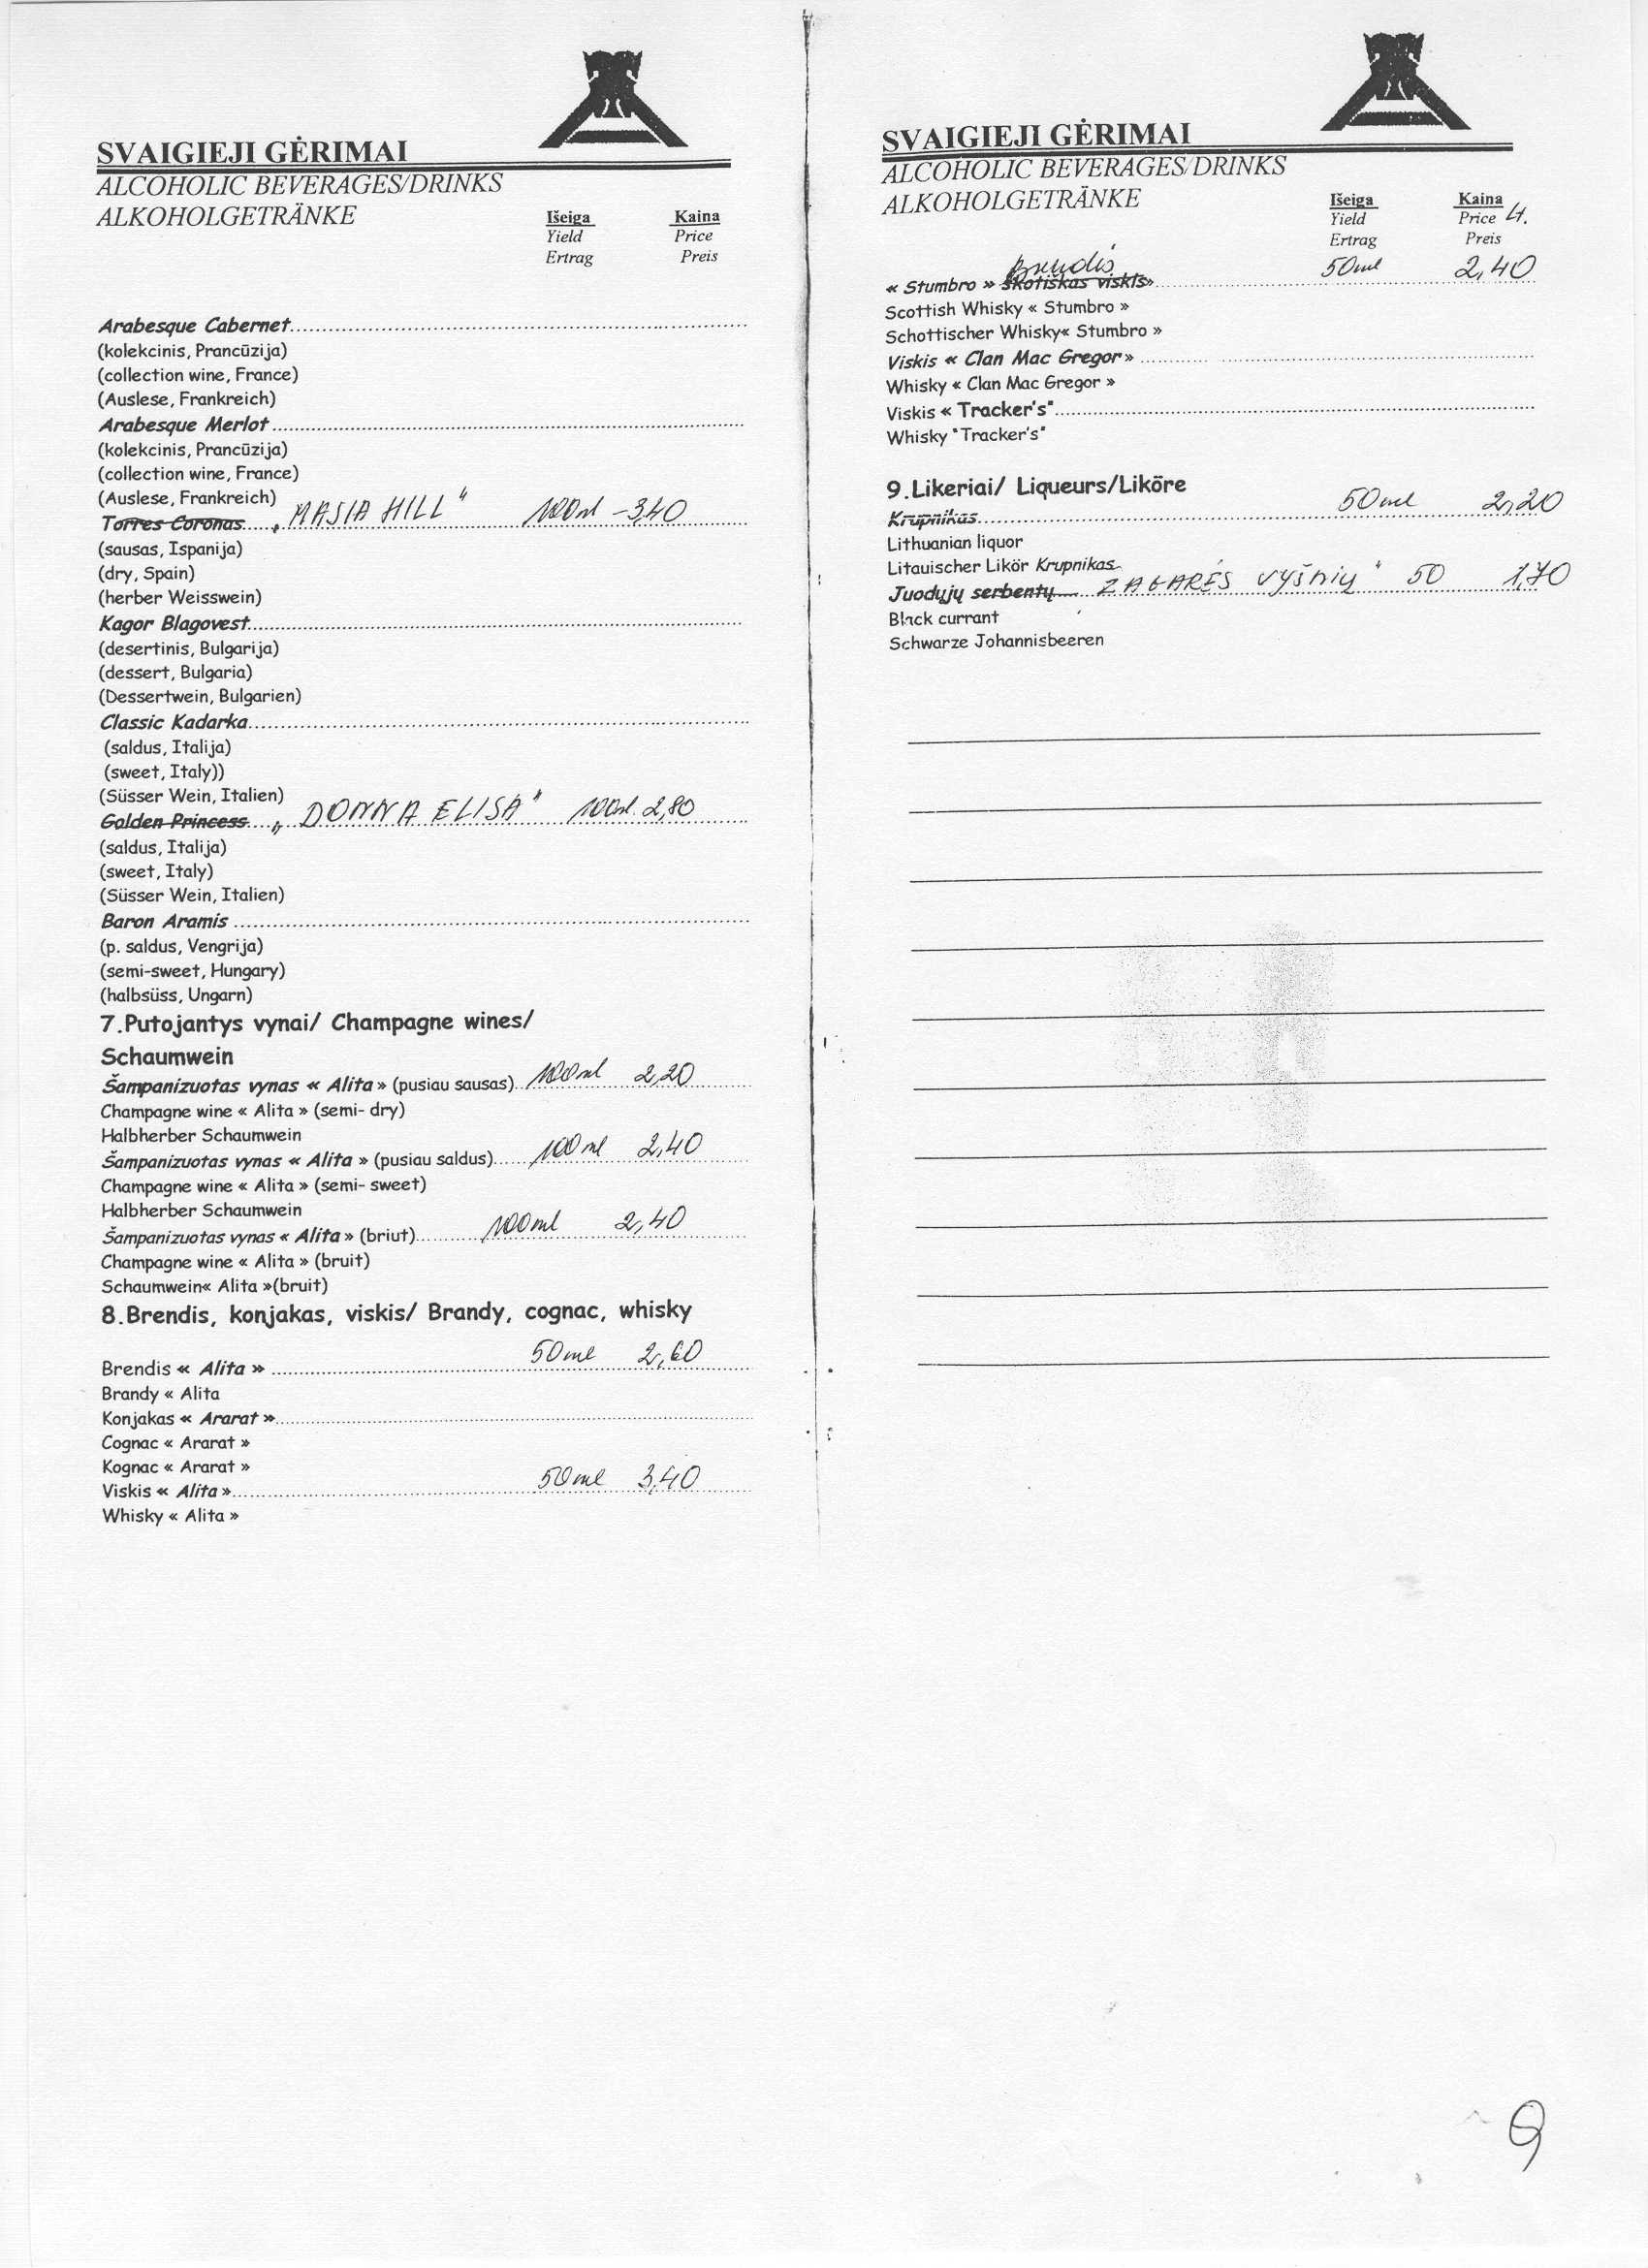 SVAIGIEJI GĖRIMAI
ALCOHOLIC BEVERAGES/DRINKS
ALKOHOLGETRÄNKE
Išeiga Kaina
Yield Price
Ertrag Preis
Arabesque Cabernet
(kolekcinis, Prancūzija)
(collection wine, France)
(Auslese, Frankreich)
Arabesque Merlot
(kolekcinis, Prancūzija)
(collection wine, France)
(Auslese, Frankreich)
Torres Coronas „MASIA HILL" 100ml - 3,40
(sausas, Ispanija)
(dry, Spain)
(herber Weisswein)
Kagor Blagovest
(desertinis, Bulgarija)
(dessert, Bulgaria)
(Dessertwein, Bulgarien)
Classic Kadarka
(saldus, Italija)
(sweet, Italy))
(Süsser Wein, Italien)
Golden Princess „DONNA ELISA" 100ml. 2,80
(saldus, Italija)
(sweet, Italy)
(Süsser Wein, Italien)
Baron Aramis
(p. saldus, Vengrija)
(semi-sweet, Hungary)
(halbsüss, Ungarn)
7.Putojantys vynai/ Champagne wines/
Schaumwein
Šampanizuotas vynas « Alita » (pusiau sausas) 100ml 2,20
Champagne wine « Alita » (semi- dry)
Halbherber Schaumwein
Šampanizuotas vynas « Alita » (pusiau saldus) 100ml 2,40
Champagne wine « Alita » (semi- sweet)
Halbherber Schaumwein
Šampanizuotas vynas « Alita » (briut) 100ml 2,40
Champagne wine « Alita » (bruit)
Schaumwein« Alita »(bruit)
8.Brendis, konjakas, viskis/ Brandy, cognac, whisky
Brendis « Alita » 50ml 2,60
Brandy « Alita
Konjakas « Ararat »
Cognac « Ararat »
Kognac « Ararat »
Viskis « Alita » 50ml 3,40
Whisky « Alita »
SVAIGIEJI GĖRIMAI
ALCOHOLIC BEVERAGES/DRINKS
ALKOHOLGETRÄNKE
Išeiga Kaina
Yield Price
Ertrag Preis
Brendis
« Stumbro » škotiškas viskis» 50ml 2,40
Scottish Whisky « Stumbro »
Schottischer Whisky« Stumbro »
Viskis « Clan Mac Gregor»
Whisky « Clan Mac Gregor »
Viskis « Tracker's"
Whisky "Tracker's"
9.Likeriai/ Liqueurs/Liköre
Krupnikas 50ml 2,20
Lithuanian liquor
Litauischer Likör Krupnikas
Juodųjų serbentų ŽAGARĖS VYŠNIŲ" 50 1,70
Black currant
Schwarze Johannisbeeren
9